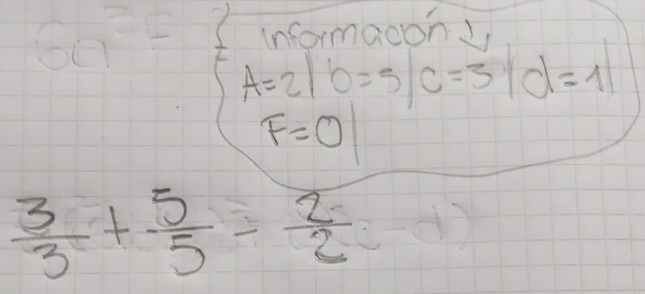 informacón ↓
A=2| b=5|c=3|d=1|
F=0|
3/3 + 5/5 - 2/2